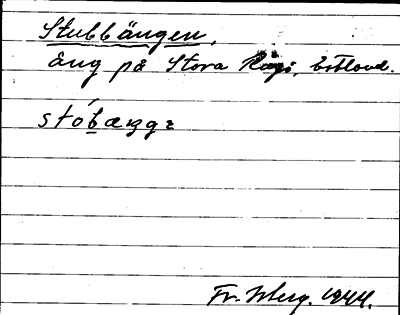 Stubbängen,
äng på Stora Rågö, Estland.
stóbæŋgɛ
Fr. Isberg. 1944.